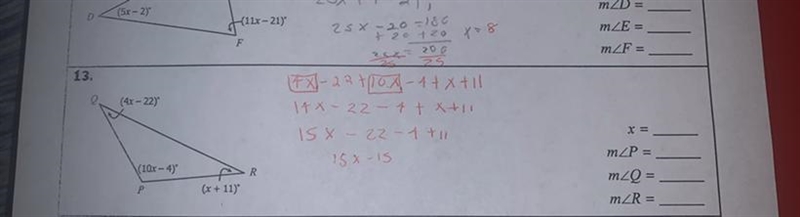 D
(5x – 2)°
(11x – 21)°
F
25x – 20 = 180
+ 20 +20
25x = 200
25 25
x = 8
m∠D = 
m∠E = 
m∠F = 
13.
Q
(4x – 22)°
(10x – 4)°
P
(x + 11)°
R
4x - 22 + 10x - 4 + x + 11
14x - 22 - 4 + x + 11
15x - 22 - 4 + 11
15x - 15
x = 
m∠P = 
m∠Q = 
m∠R =